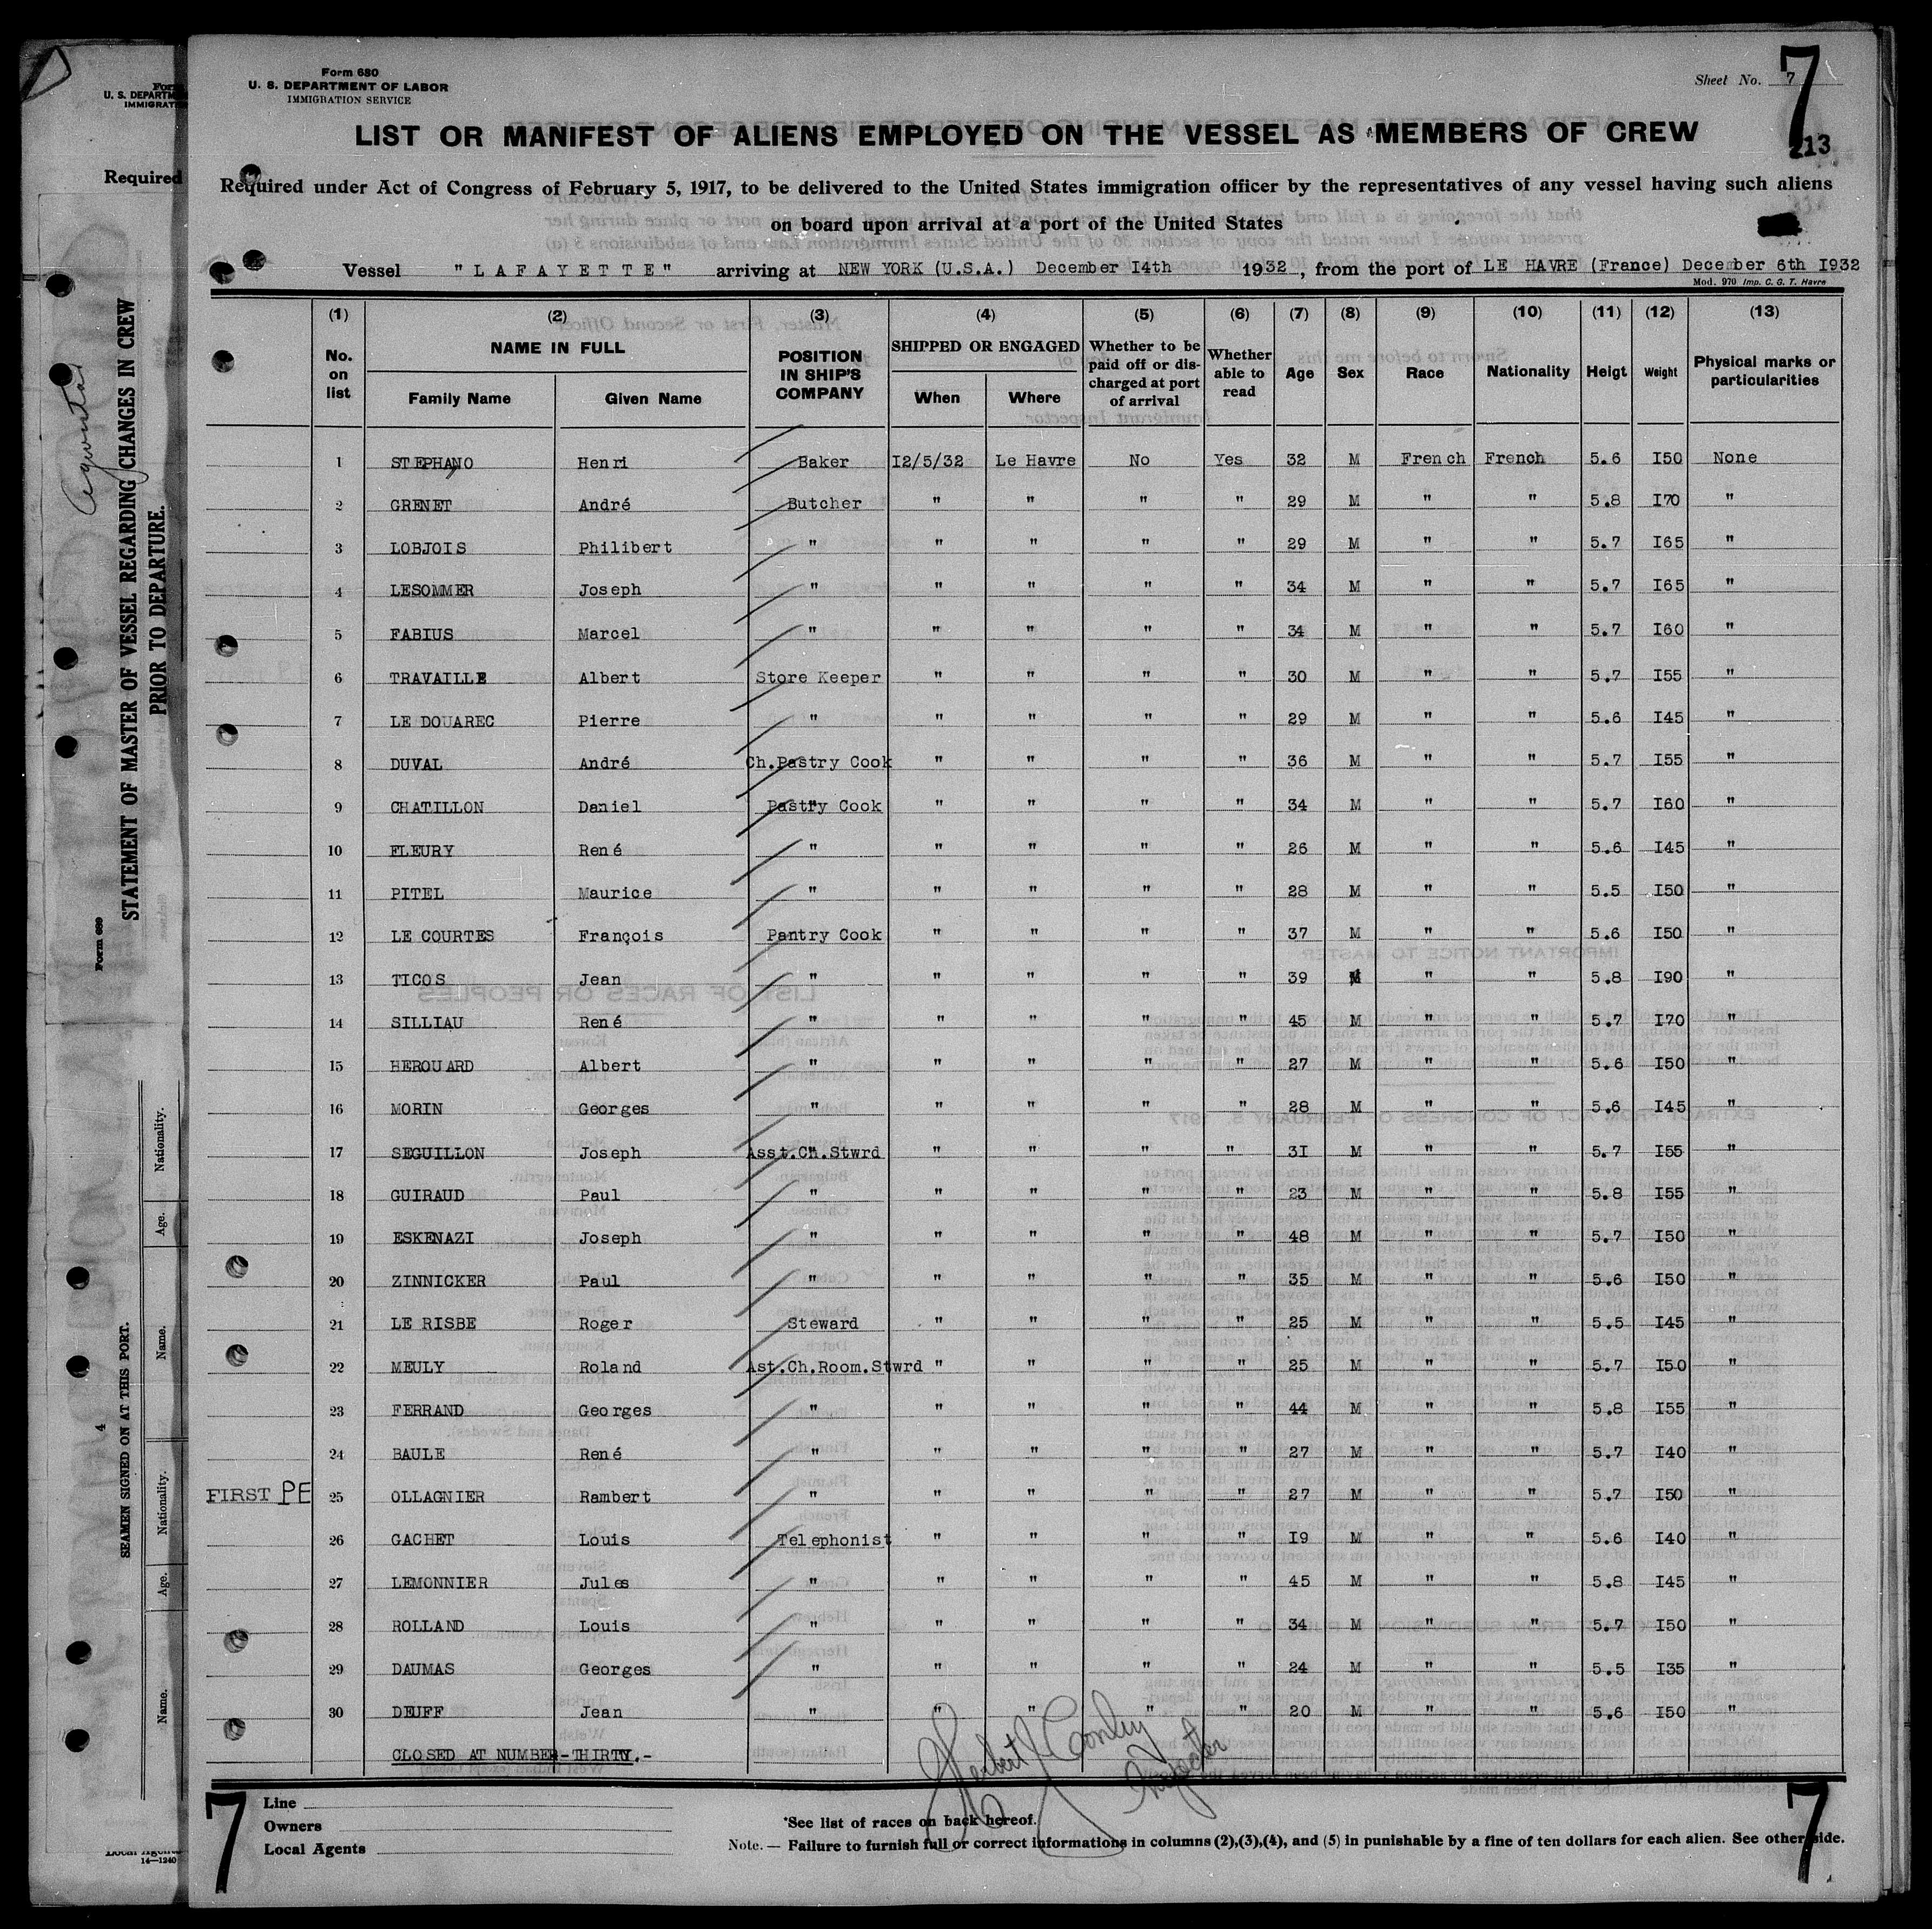 Form 680
U. S. DEPARTMENT OF LABOR
IMMIGRATION SERVICE
Sheet No. 7
7
213
LIST OR MANIFEST OF ALIENS EMPLOYED ON THE VESSEL AS MEMBERS OF CREW
Required under Act of Congress of February 5, 1917, to be delivered to the United States immigration officer by the representatives of any vessel having such aliens
on board upon arrival at a port of the United States
Vessel "LAFAYETTE" arriving at NEW YORK (U.S.A.) December I4th 1932, from the port of LE HAVRE (France) December 6th I932
Mod. 970 Imp. C. G. T. Havre
(1) (2) (3) (4) (5) (6) (7) (8) (9) (10) (11) (12) (13)
No. on list NAME IN FULL Family Name Given Name POSITION IN SHIP'S COMPANY SHIPPED OR ENGAGED When Where Whether to be paid off or discharged at port of arrival Whether able to read Age Sex Race Nationality Helgt Weight Physical marks or particularities
1 STEPHANO Henri Baker I2/5/32 Le Havre No Yes 32 M French French 5.6 I50 None
2 GRENET André Butcher " " " " 29 M " " 5.8 I70 "
3 LOBJOIS Philibert " " " " " 29 M " " 5.7 I65 "
4 LESOMMER Joseph " " " " " 34 M " " 5.7 I65 "
5 FABIUS Marcel " " " " " 34 M " " 5.7 I60 "
6 TRAVAILLE Albert Store Keeper " " " " 30 M " " 5.7 I55 "
7 LE DOUAREC Pierre " " " " " 29 M " " 5.6 I45 "
8 DUVAL André Ch.Pastry Cook " " " " 36 M " " 5.7 I55 "
9 CHATILLON Daniel Pastry Cook " " " " 34 M " " 5.7 I60 "
10 FLEURY René " " " " " 26 M " " 5.6 I45 "
11 PITEL Maurice " " " " " 28 M " " 5.5 I50 "
12 LE COURTES François Pantry Cook " " " " 37 M " " 5.6 I50 "
13 TICOS Jean " " " " " 39 M " " 5.8 I90 "
14 SILLIAU René " " " " " 45 M " " 5.7 I70 "
15 HEROUARD Albert " " " " " 27 M " " 5.6 I50 "
16 MORIN Georges " " " " " 28 M " " 5.6 I45 "
17 SEGUILLON Joseph Asst.Ch.Stwrd " " " " 3I M " " 5.7 I55 "
18 GUIRAUD Paul " " " " " 23 M " " 5.8 I55 "
19 ESKENAZI Joseph " " " " " 48 M " " 5.7 I50 "
20 ZINNICKER Paul " " " " " 35 M " " 5.6 I50 "
21 LE RISBE Roger Steward " " " " 25 M " " 5.5 I45 "
22 MEULY Roland Ast.Ch.Room.Stwrd " " " " 25 M " " 5.7 I50 "
23 FERRAND Georges " " " " " 44 M " " 5.8 I55 "
24 BAULE René " " " " " 27 M " " 5.7 I40 "
FIRST PE 25 OLLAGNIER Rambert " " " " " 27 M " " 5.7 I50 "
26 GACHET Louis Telephonist " " " " I9 M " " 5.6 I40 "
27 LEMONNIER Jules " " " " " 45 M " " 5.8 I45 "
28 ROLLAND Louis " " " " " 34 M " " 5.7 I50 "
29 DAUMAS Georges " " " " " 24 M " " 5.5 I35 "
30 DEUFF Jean " " " " " 20 M " " 5.6 I50 "
CLOSED AT NUMBER-THIRTY.-
Herbert J Conley
Inspector
7
Line
Owners
Local Agents
*See list of races on back hereof.
Note.— Failure to furnish full or correct informations in columns (2),(3),(4), and (5) in punishable by a fine of ten dollars for each alien. See other side.
7
U. S. DEPARTM
IMMIGRAT
Required
STATEMENT OF MASTER OF VESSEL REGARDING CHANGES IN CREW
PRIOR TO DEPARTURE.
Form 689
SEAMEN SIGNED ON AT THIS PORT.
4
Nationality.
Age.
Name.
Nationality.
Age.
Name.
Local Agents
14—1240